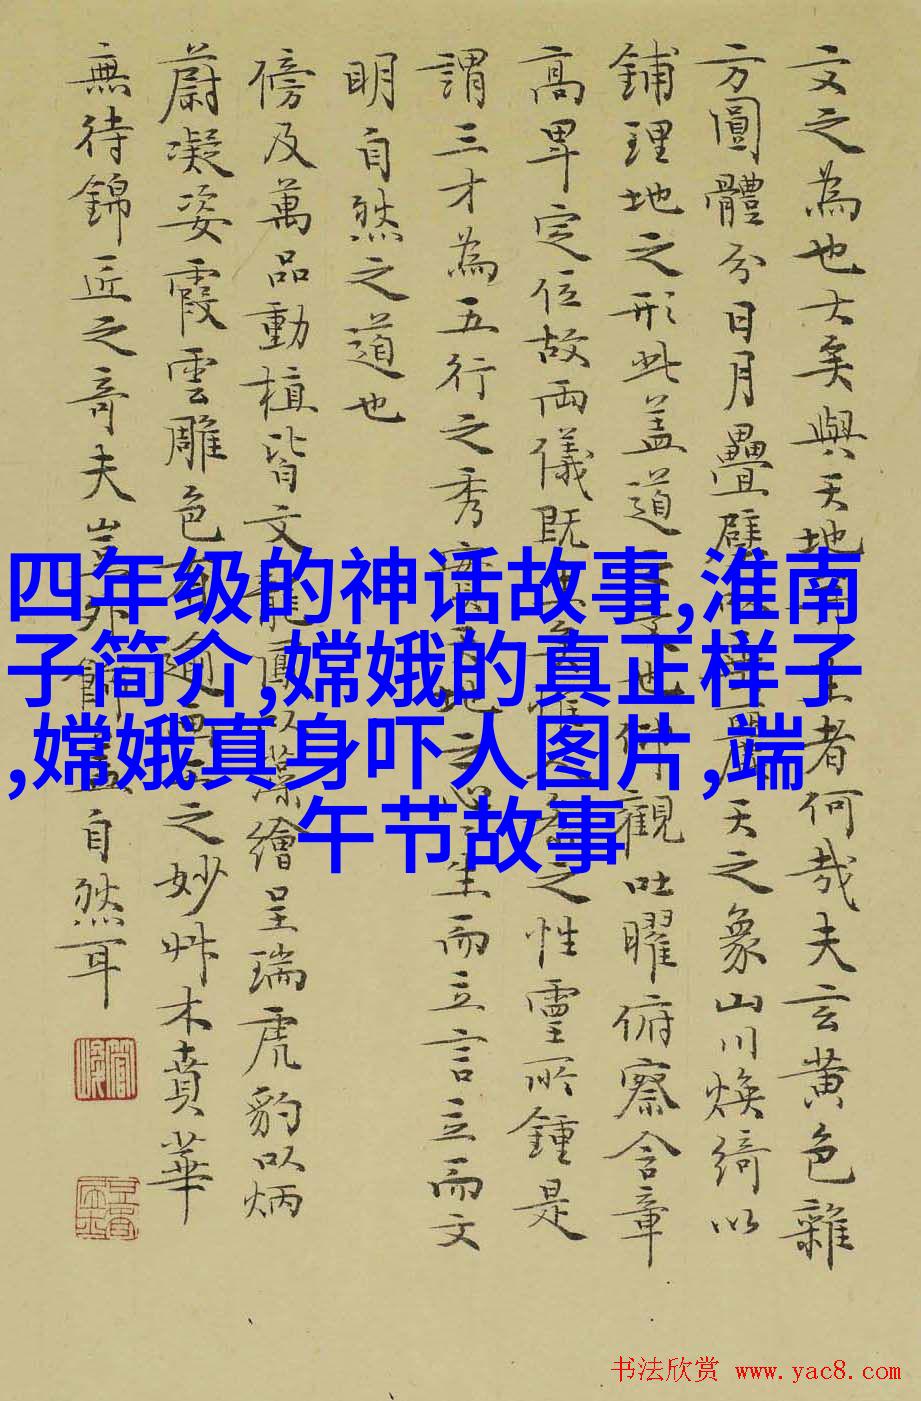 文之為也大矣與天地並生者何哉夫玄黄色雜
方圓體分日月疊璧以垂麗天之象山川煥綺以
鋪理地之形此盖道之文也仰觀吐曜俯察含章
高卑定位故兩儀既生矣惟人參之性靈所鍾是
謂三才為五行之秀實天地之心生而立言立而文
明自然之道也
傍及萬品動植皆文龍鳳以藻繪呈瑞虎豹以炳
蔚凝姿霞雲雕色有逾畫工之妙艸木賁華
無待錦匠之奇夫豈外飾盖自然耳
四年级的神话故事,淮南
子简介,嫦娥的真正样子
,嫦娥真身吓人图片,端
午节故事
书法欣赏 www.yac8.com